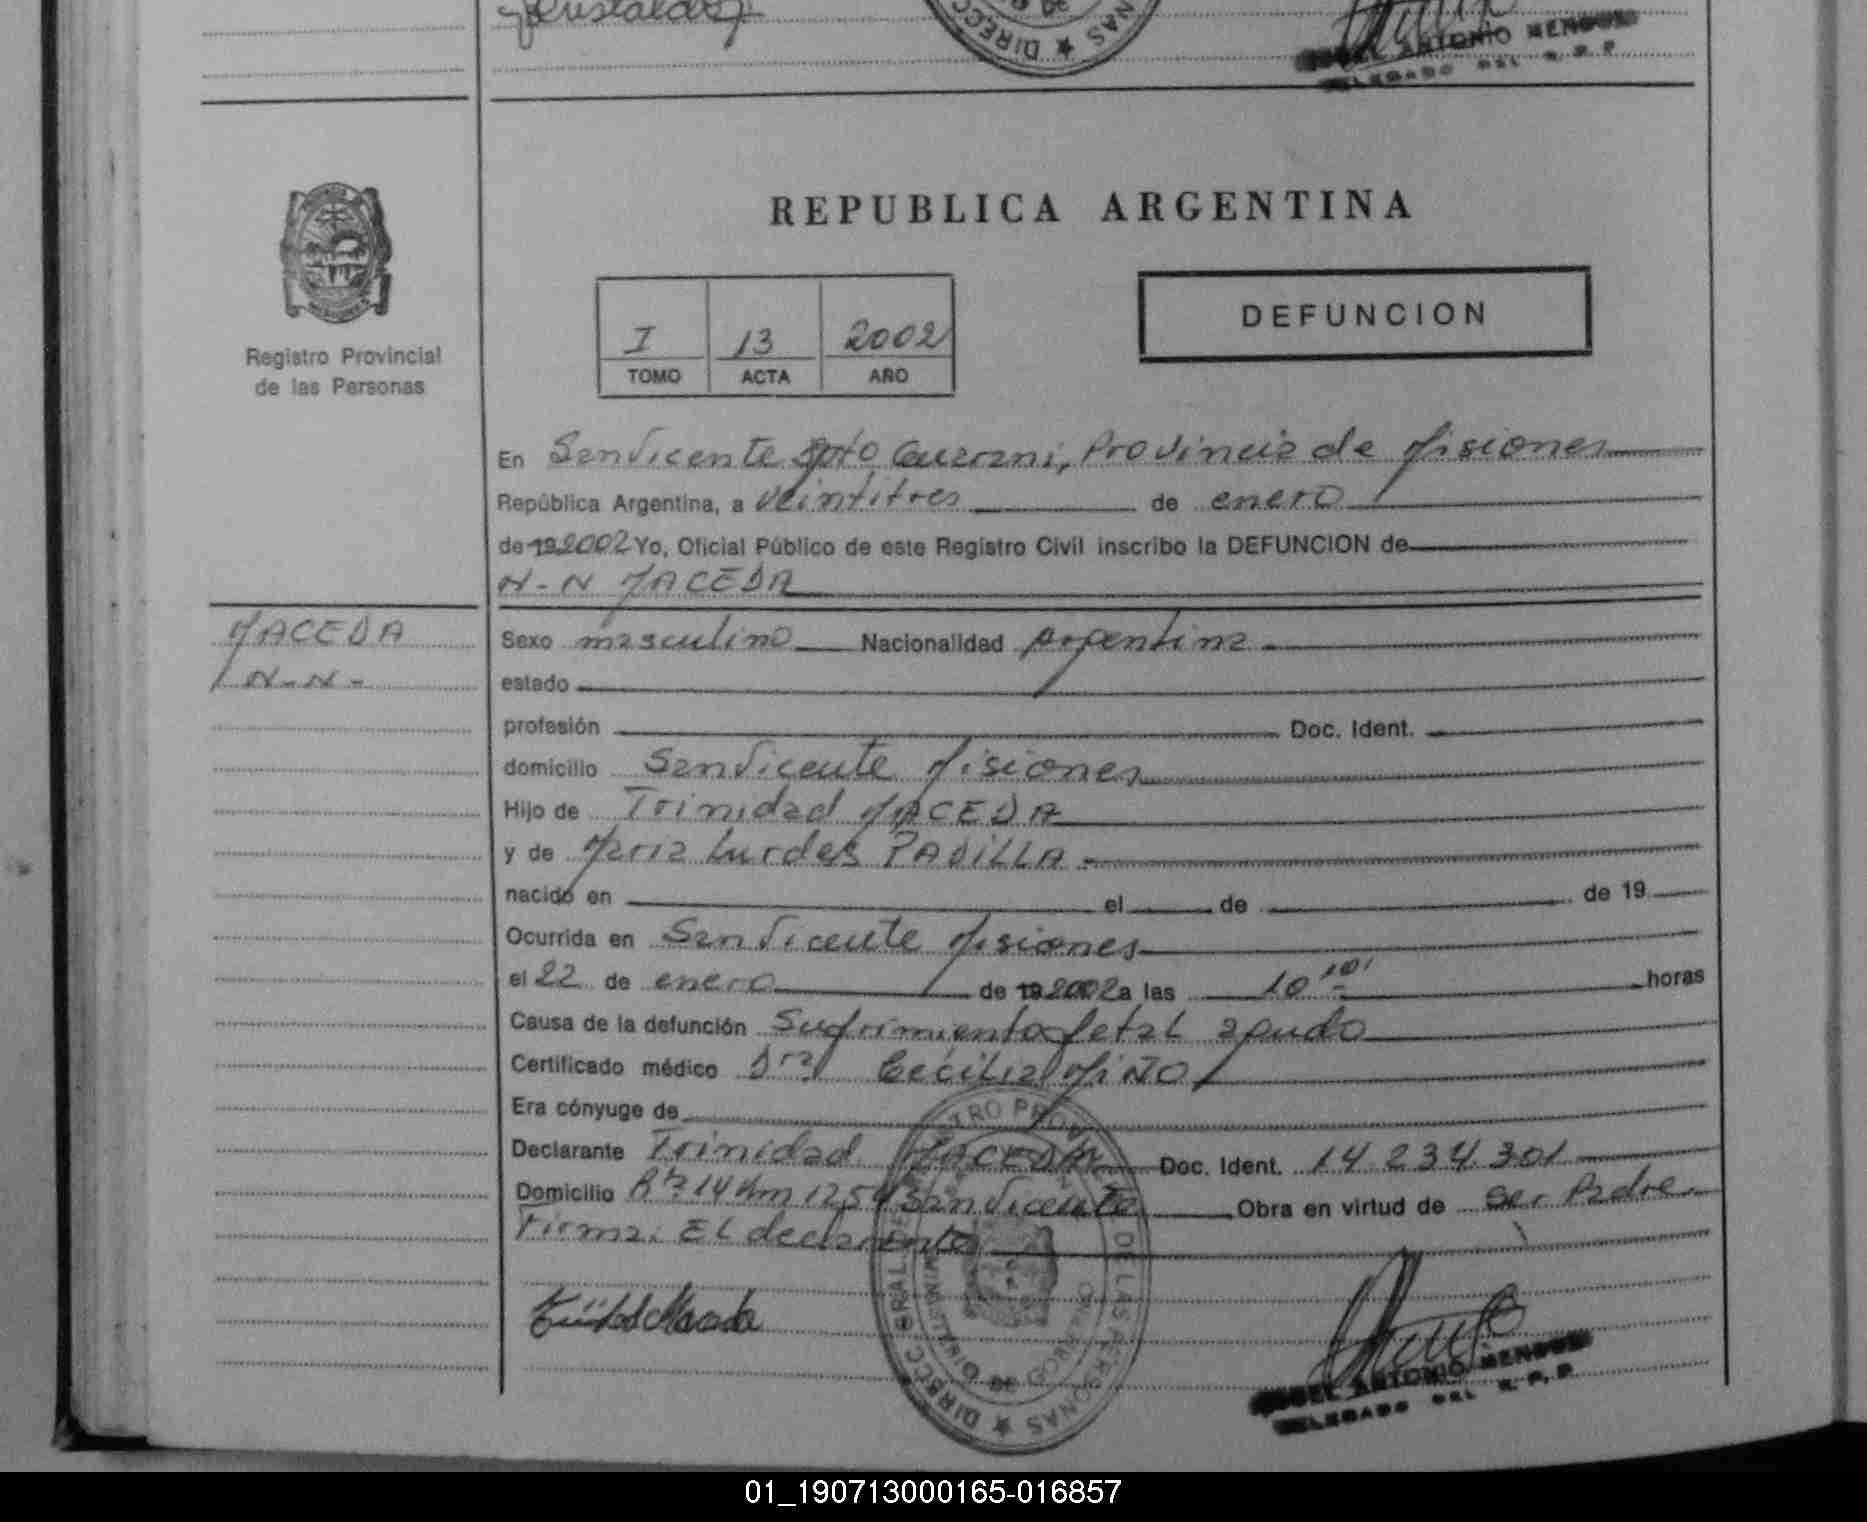 ANTONIO MENDOZA
DELEGADO DEL R. P. P.
REPUBLICA ARGENTINA
Registro Provincial
de las Personas
I 13 2002
TOMO ACTA AÑO
DEFUNCION
En San Vicente Dpto Guarani, Provincia de Misiones
República Argentina, a veintitres de enero
de 19 2002 Yo, Oficial Público de este Registro Civil inscribo la DEFUNCION de
N-N MACEDA
MACEDA
N-N-
Sexo masculino Nacionalidad Argentina
estado
profesión Doc. Ident.
domicilio San Vicente Misiones
Hijo de Trinidad MACEDA
y de Maria Lurdes PADILLA
nacido en el de de 19
Ocurrida en San Vicente Misiones
el 22 de enero de 19 2002 a las 10 10' horas
Causa de la defunción Sufrimiento fetal agudo
Certificado médico Dra Cecilia MIÑO
Era cónyuge de
Declarante Trinidad MACEDA Doc. Ident. 14.234.301
Domicilio Rta 14 Km 1254 San Vicente Obra en virtud de ser Padre.
Firma: El declarante
DE LAS PERSONAS ★ DIRECC
ANTONIO
DELEGADO DEL R. P. P.
01_190713000165-016857